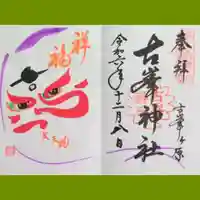 奉拝
古峯ヶ原
古峯神社
令和六年十二月八日
祥
福